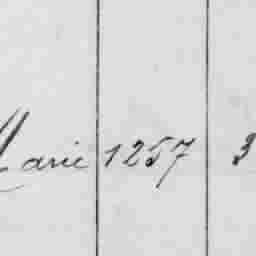 Marie 1257 3